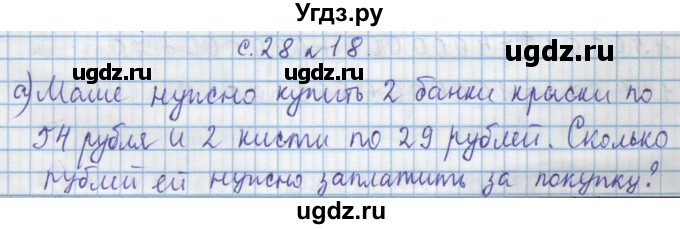 Угдз.ру
с. 28 № 18.
ugdz.ru ugdz.ru
а) Маше нужно купить 2 банки краски по
54 рубля и 2 кисти по 29 рублей. Сколько
рублей ей нужно заплатить за покупку?
ugdz.ru ugdz.ru